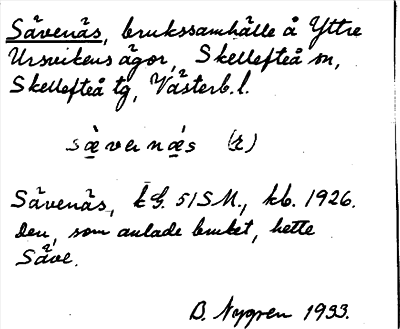 Sävenäs, brukssamhälle å Yttre
Ursvikens ägor, Skellefteå sn,
Skellefteå tg, Västerb.l.
sæ̀venǽs
Sävenäs, 51SM., kb. 1926.
Den, som anlade bruket, hette
Säve.
D. Nygren 1933.